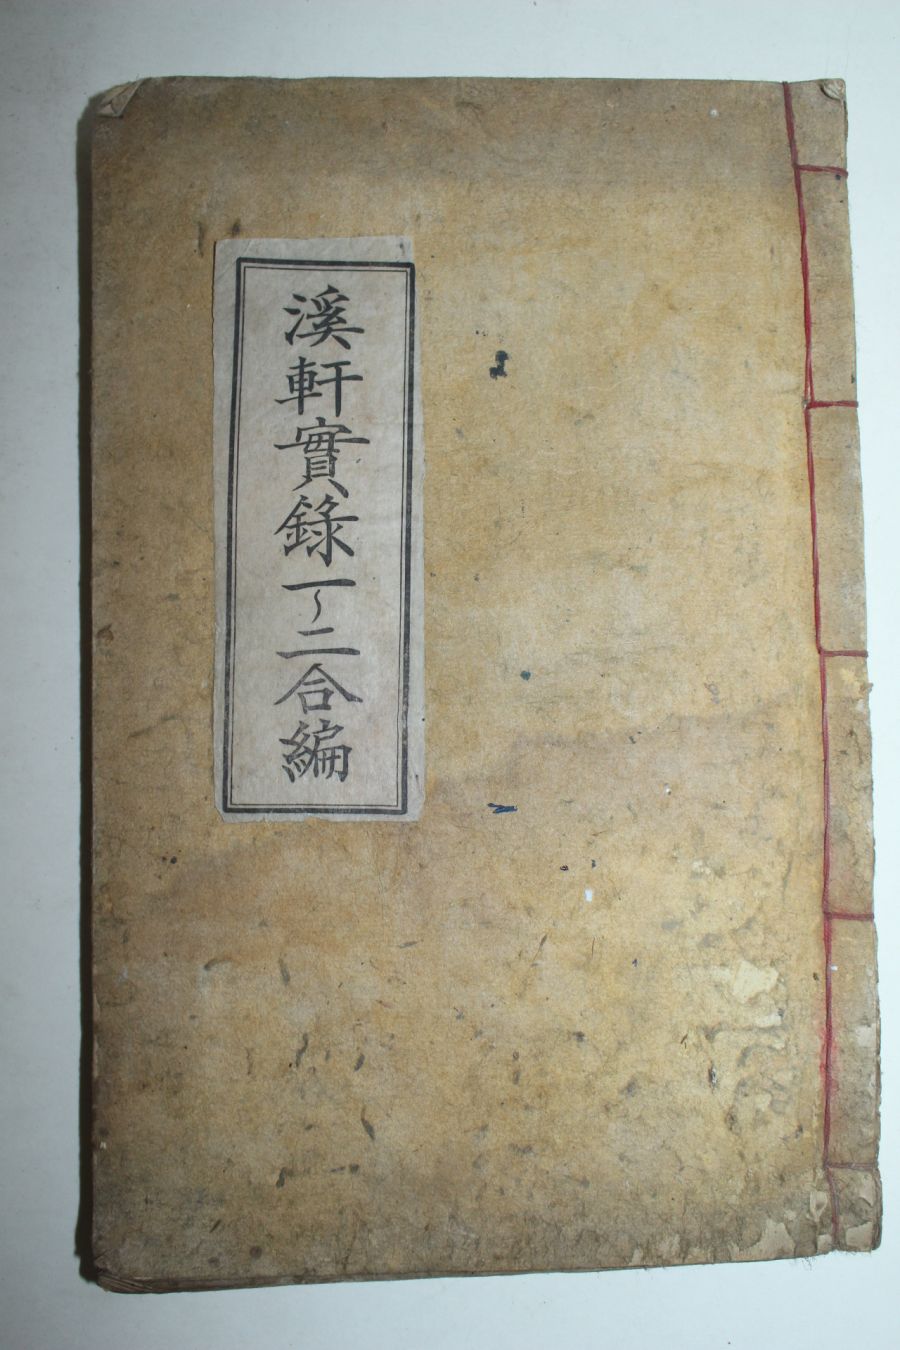 溪軒實錄一~二合編